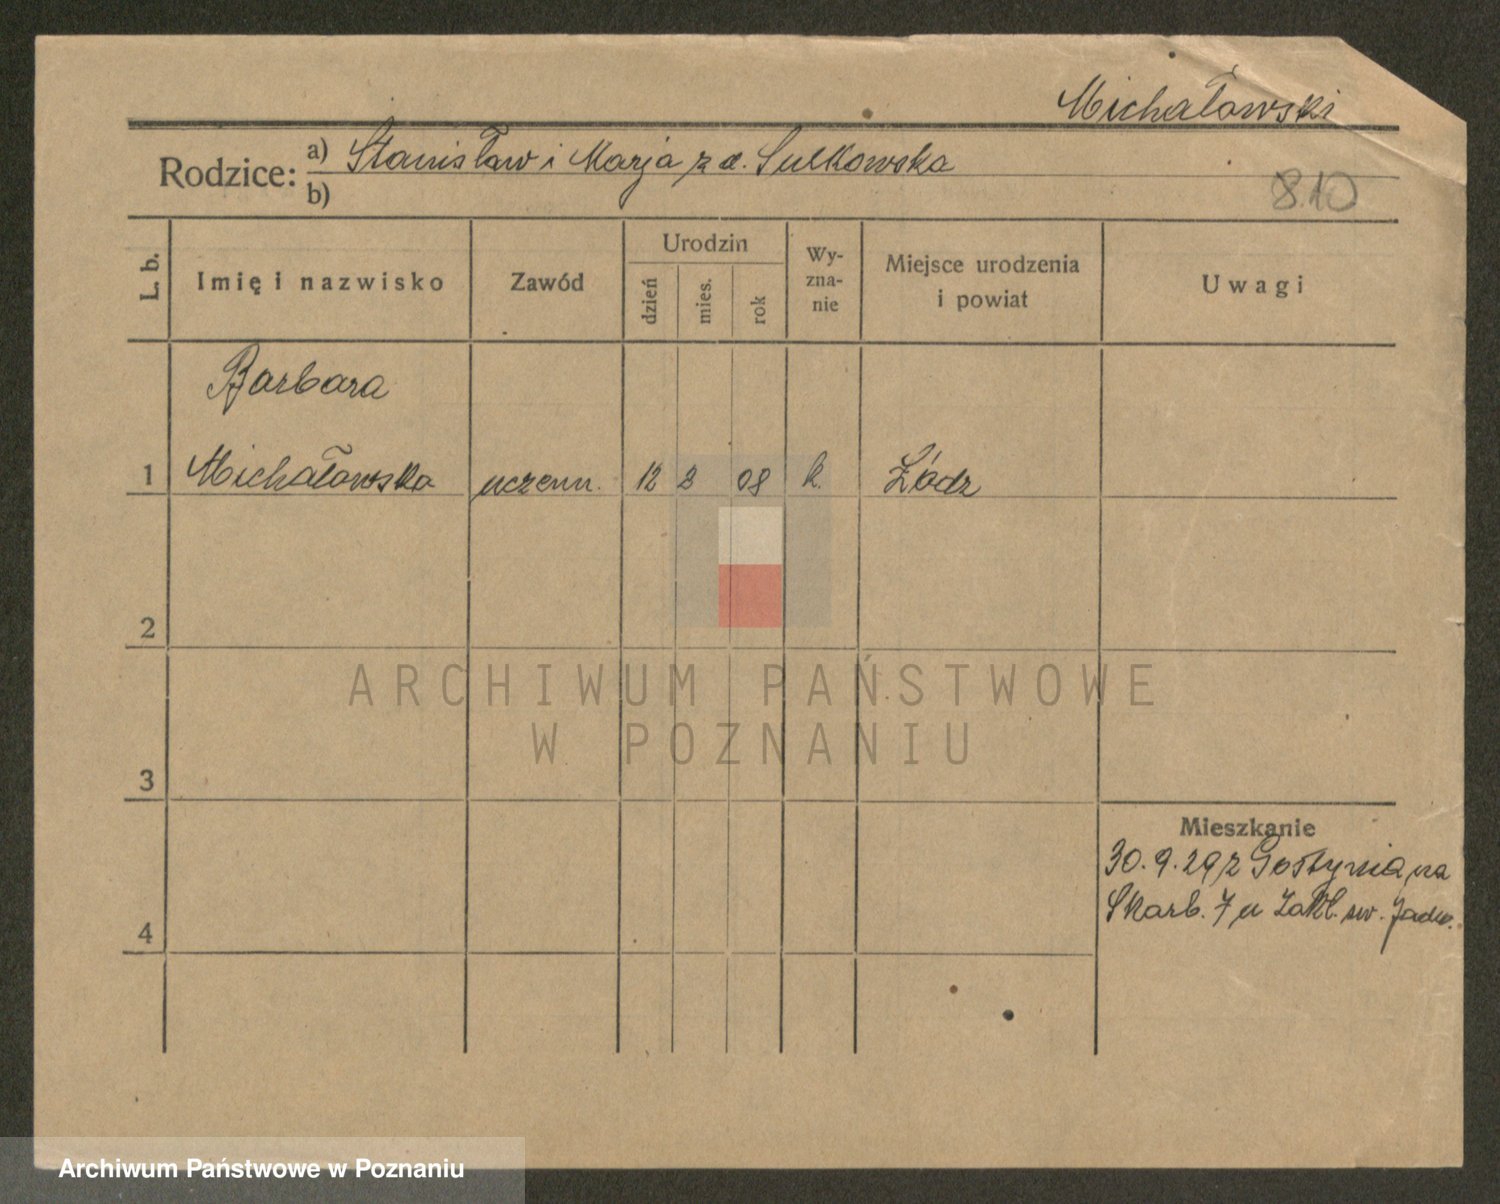 Michałowski
Rodzice: a) Stanisław i Marja z d. Sulkowska
b)
8.10
L. b.
Imię i nazwisko
Zawód
Urodzin
dzień
mies.
rok
Wy-
zna-
nie
Miejsce urodzenia
i powiat
Uwagi
Barbara
1 Michałowska uczenn. 12 3 08 k. Łódz
2
3
4
Mieszkanie
30.9.29 z Gostynia na
Skarb. 7 u Zakł. św. Jadw.
ARCHIWUM PAŃSTWOWE
W POZNANIU
Archiwum Państwowe w Poznaniu